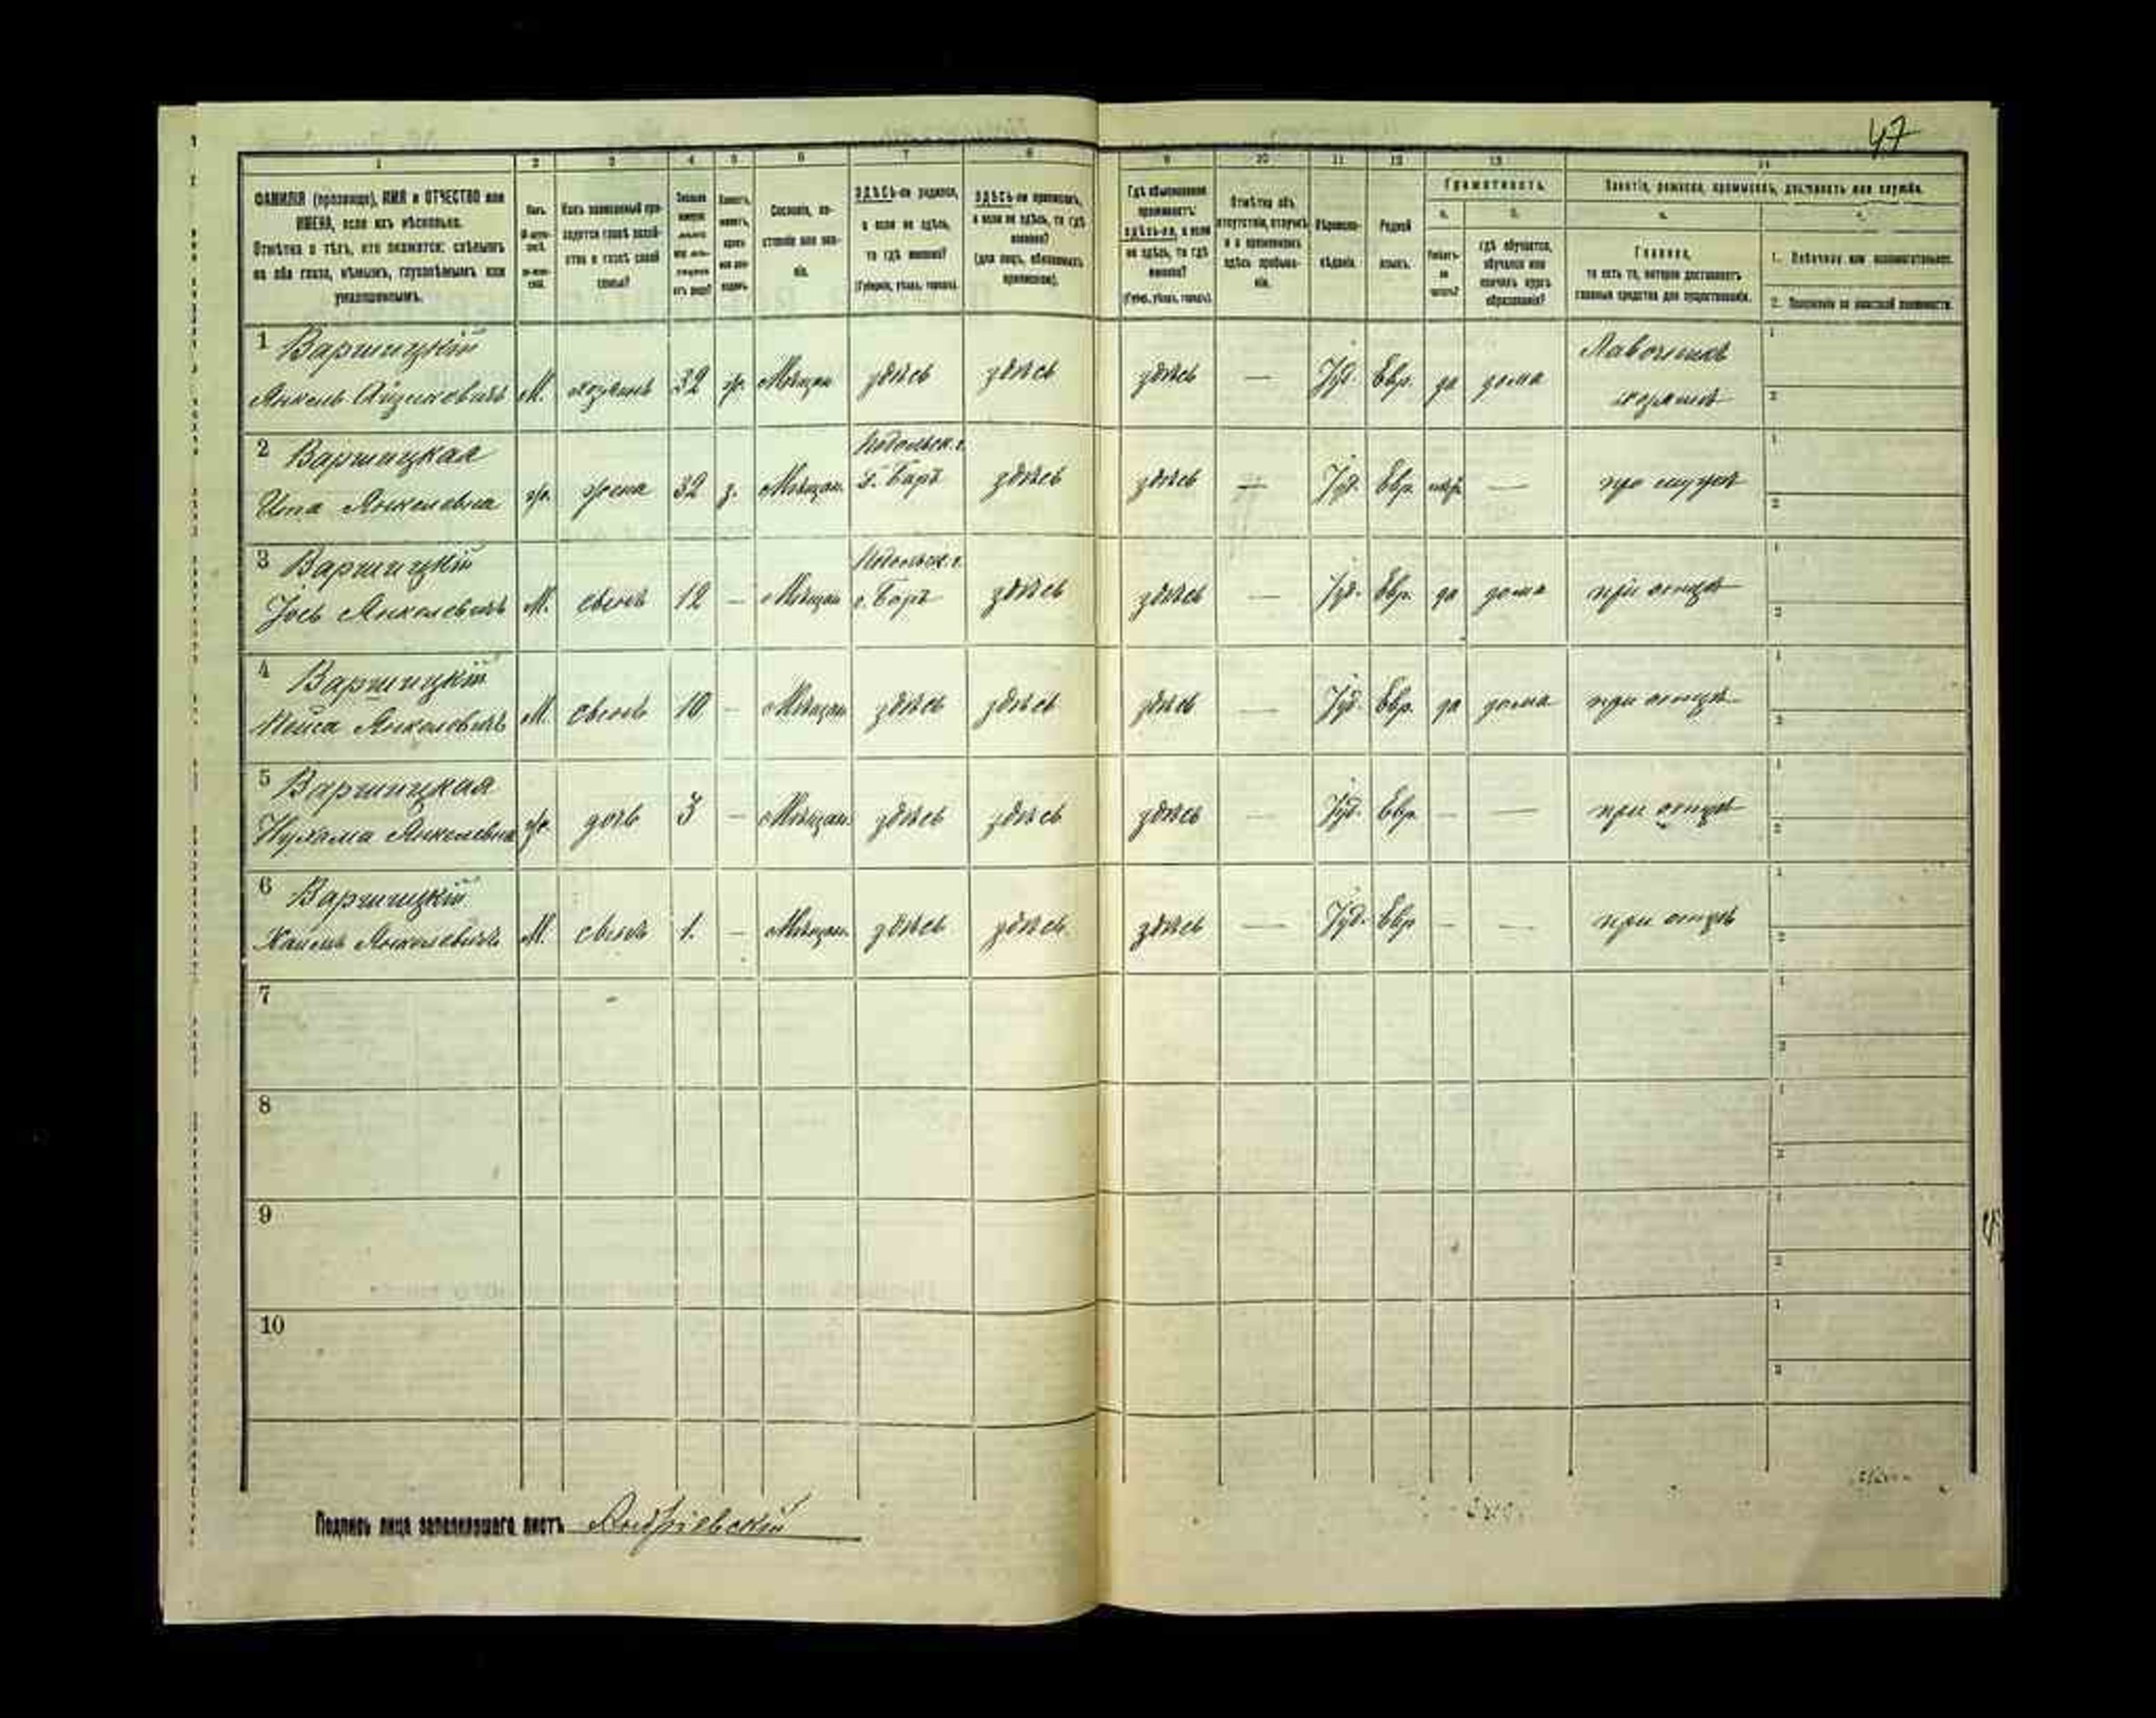 47
1 2 3 4 5 6 7 8 9 10 11 12 13 14
ФАМИЛІЯ (прозвище), ИМЯ и ОТЧЕСТВО или
ИМЕНА, если ихъ нѣсколько.
Отмѣтка о тѣхъ, кто окажется: слѣпымъ
на оба глаза, нѣмымъ, глухонѣмымъ или
умалишеннымъ.
Какъ записанный при-
ходится главѣ хозяй-
ства и главѣ своей
семьи?
Сословіе, со-
стояніе или зва-
ніе.
ЗДѢСЬ-ли родился,
а если не здѣсь,
то гдѣ именно?
(Губернія, уѣздъ, городъ).
ЗДѢСЬ-ли приписанъ,
а если не здѣсь, то гдѣ
именно?
(для лицъ, обязанныхъ
припискою).
Гдѣ обыкновенно
проживаетъ:
здѣсь-ли, а если
не здѣсь, то гдѣ
именно?
(Губер., уѣздъ, городъ).
Отмѣтка объ
отсутствіи, отлучкѣ
и о временномъ
здѣсь пребыва-
ніи.
Вѣроиспо-
вѣданіе.
Родной
языкъ.
Грамотность.
а.
б.
гдѣ обучается,
обучался или
кончилъ курсъ
образованія?
Занятіе, ремесло, промыселъ, должность или служба.
а.
Главное,
то есть то, которое доставляетъ
главныя средства для существованія.
1. Побочное или вспомогательное.
2. Положеніе по воинской повинности.
1 Варшицкій
Янкель Айзиковичъ М. хозяинъ 32 ж. Мѣщан здѣсь здѣсь здѣсь — Іуд. Евр. да дома Лавочникъ
хозяинъ
2 Варшицкая Подольск. г.
Янкелевна ж. жена 32 з. Мѣщан. г. Баръ здѣсь здѣсь — Іуд. Евр. — при мужѣ
3 Варшицкій Подольск. г.
Іось Янкелевичъ М. сынъ 12 — Мѣщан г. Баръ здѣсь здѣсь — Іуд. Евр. да дома при отцѣ
4 Варшицкій
Янкелевичъ М. сынъ 10 — Мѣщан здѣсь здѣсь здѣсь — Іуд. Евр. да дома при отцѣ
5 Варшицкая
Нухама Янкелевна ж. дочь 3 — Мѣщан. здѣсь здѣсь здѣсь — Іуд. Евр. — — при отцѣ
6 Варшицкій
Янкелевичъ М. сынъ 1. — Мѣщан. здѣсь здѣсь здѣсь — Іуд. Евр — — при отцѣ
7
8
9
10
Подпись лица заполнившаго листъ Андріевскій